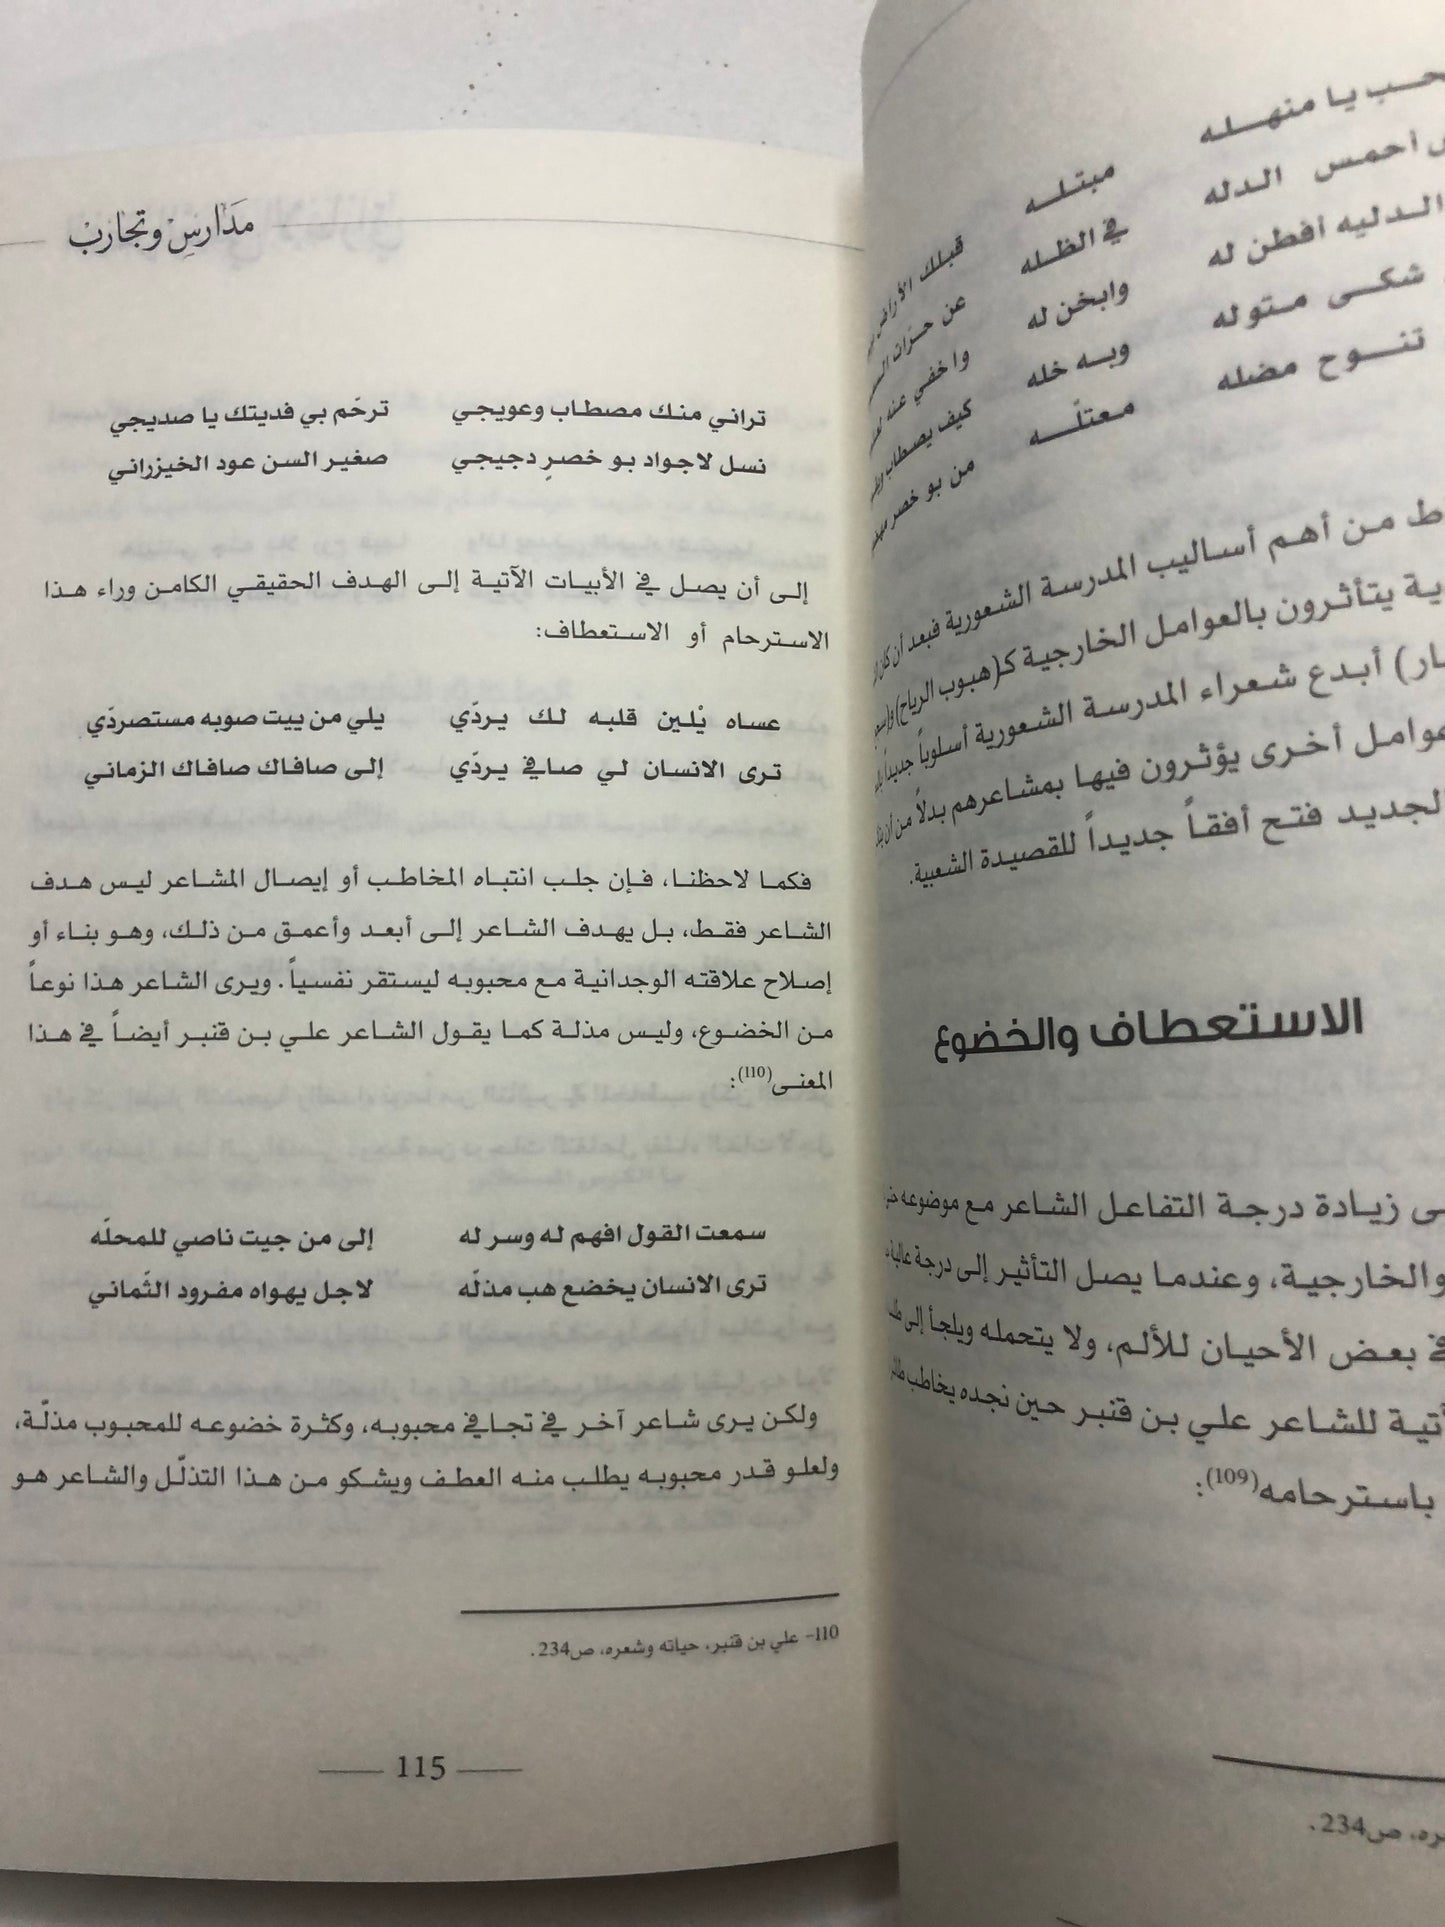 حب يا منهله مبتله
احمس الدله في الظله
الدليه افطن له وابخن له
شكى متوله وبه خله
تنوح مضله معتلّه
قبلك الأراض
عن حرّات
واخفي عنه
كيف يصطاب
من بو خصر
ط من أهم أساليب المدرسة الشعورية فبعد أن كان
ية يتأثرون بالعوامل الخارجية كـ(هبوب الرياح)
ار) أبدع شعراء المدرسة الشعورية أسلوباً جديداً
عوامل أخرى يؤثرون فيها بمشاعرهم بدلاً من أن
لجديد فتح أفقاً جديداً للقصيدة الشعبية.
الاستعطاف والخضوع
ى زيادة درجة التفاعل الشاعر مع موضوعه
والخارجية، وعندما يصل التأثير إلى درجة عالية
في بعض الأحيان للألم، ولا يتحمله ويلجأ إلى
أتية للشاعر علي بن قنبر حين نجده يخاطب
باسترحامه(109):
ره، ص234.
مَدَارسِ وتجَاربْ
تراني منك مصطاب وعويجي ترحّم بي فديتك يا صديجي
نسل لاجواد بو خصرٍ دجيجي صغير السن عود الخيزراني
إلى أن يصل في الأبيات الآتية إلى الهدف الحقيقي الكامن وراء هذا
الاسترحام أو الاستعطاف:
عساه يْلين قلبه لك يردّي يلي من ييت صوبه مستصردّي
ترى الانسان لي صافي يردّي إلى صافاك صافاك الزماني
فكما لاحظنا، فإن جلب انتباه المخاطب أو إيصال المشاعر ليس هدف
الشاعر فقط، بل يهدف الشاعر إلى أبعد وأعمق من ذلك، وهو بناء أو
إصلاح علاقته الوجدانية مع محبوبه ليستقر نفسياً. ويرى الشاعر هذا نوعاً
من الخضوع، وليس مذلة كما يقول الشاعر علي بن قنبر أيضاً في هذا
المعنى(110):
سمعت القول افهم له وسر له إلى من جيت ناصي للمحلّه
ترى الانسان يخضع هب مذلّه لاجل يهواه مفرود الثّماني
ولكن يرى شاعر آخر في تجافي محبوبه، وكثرة خضوعه للمحبوب مذلّة،
ولعلو قدر محبوبه يطلب منه العطف ويشكو من هذا التذلّل والشاعر هو
110- علي بن قنبر، حياته وشعره، ص234.
115